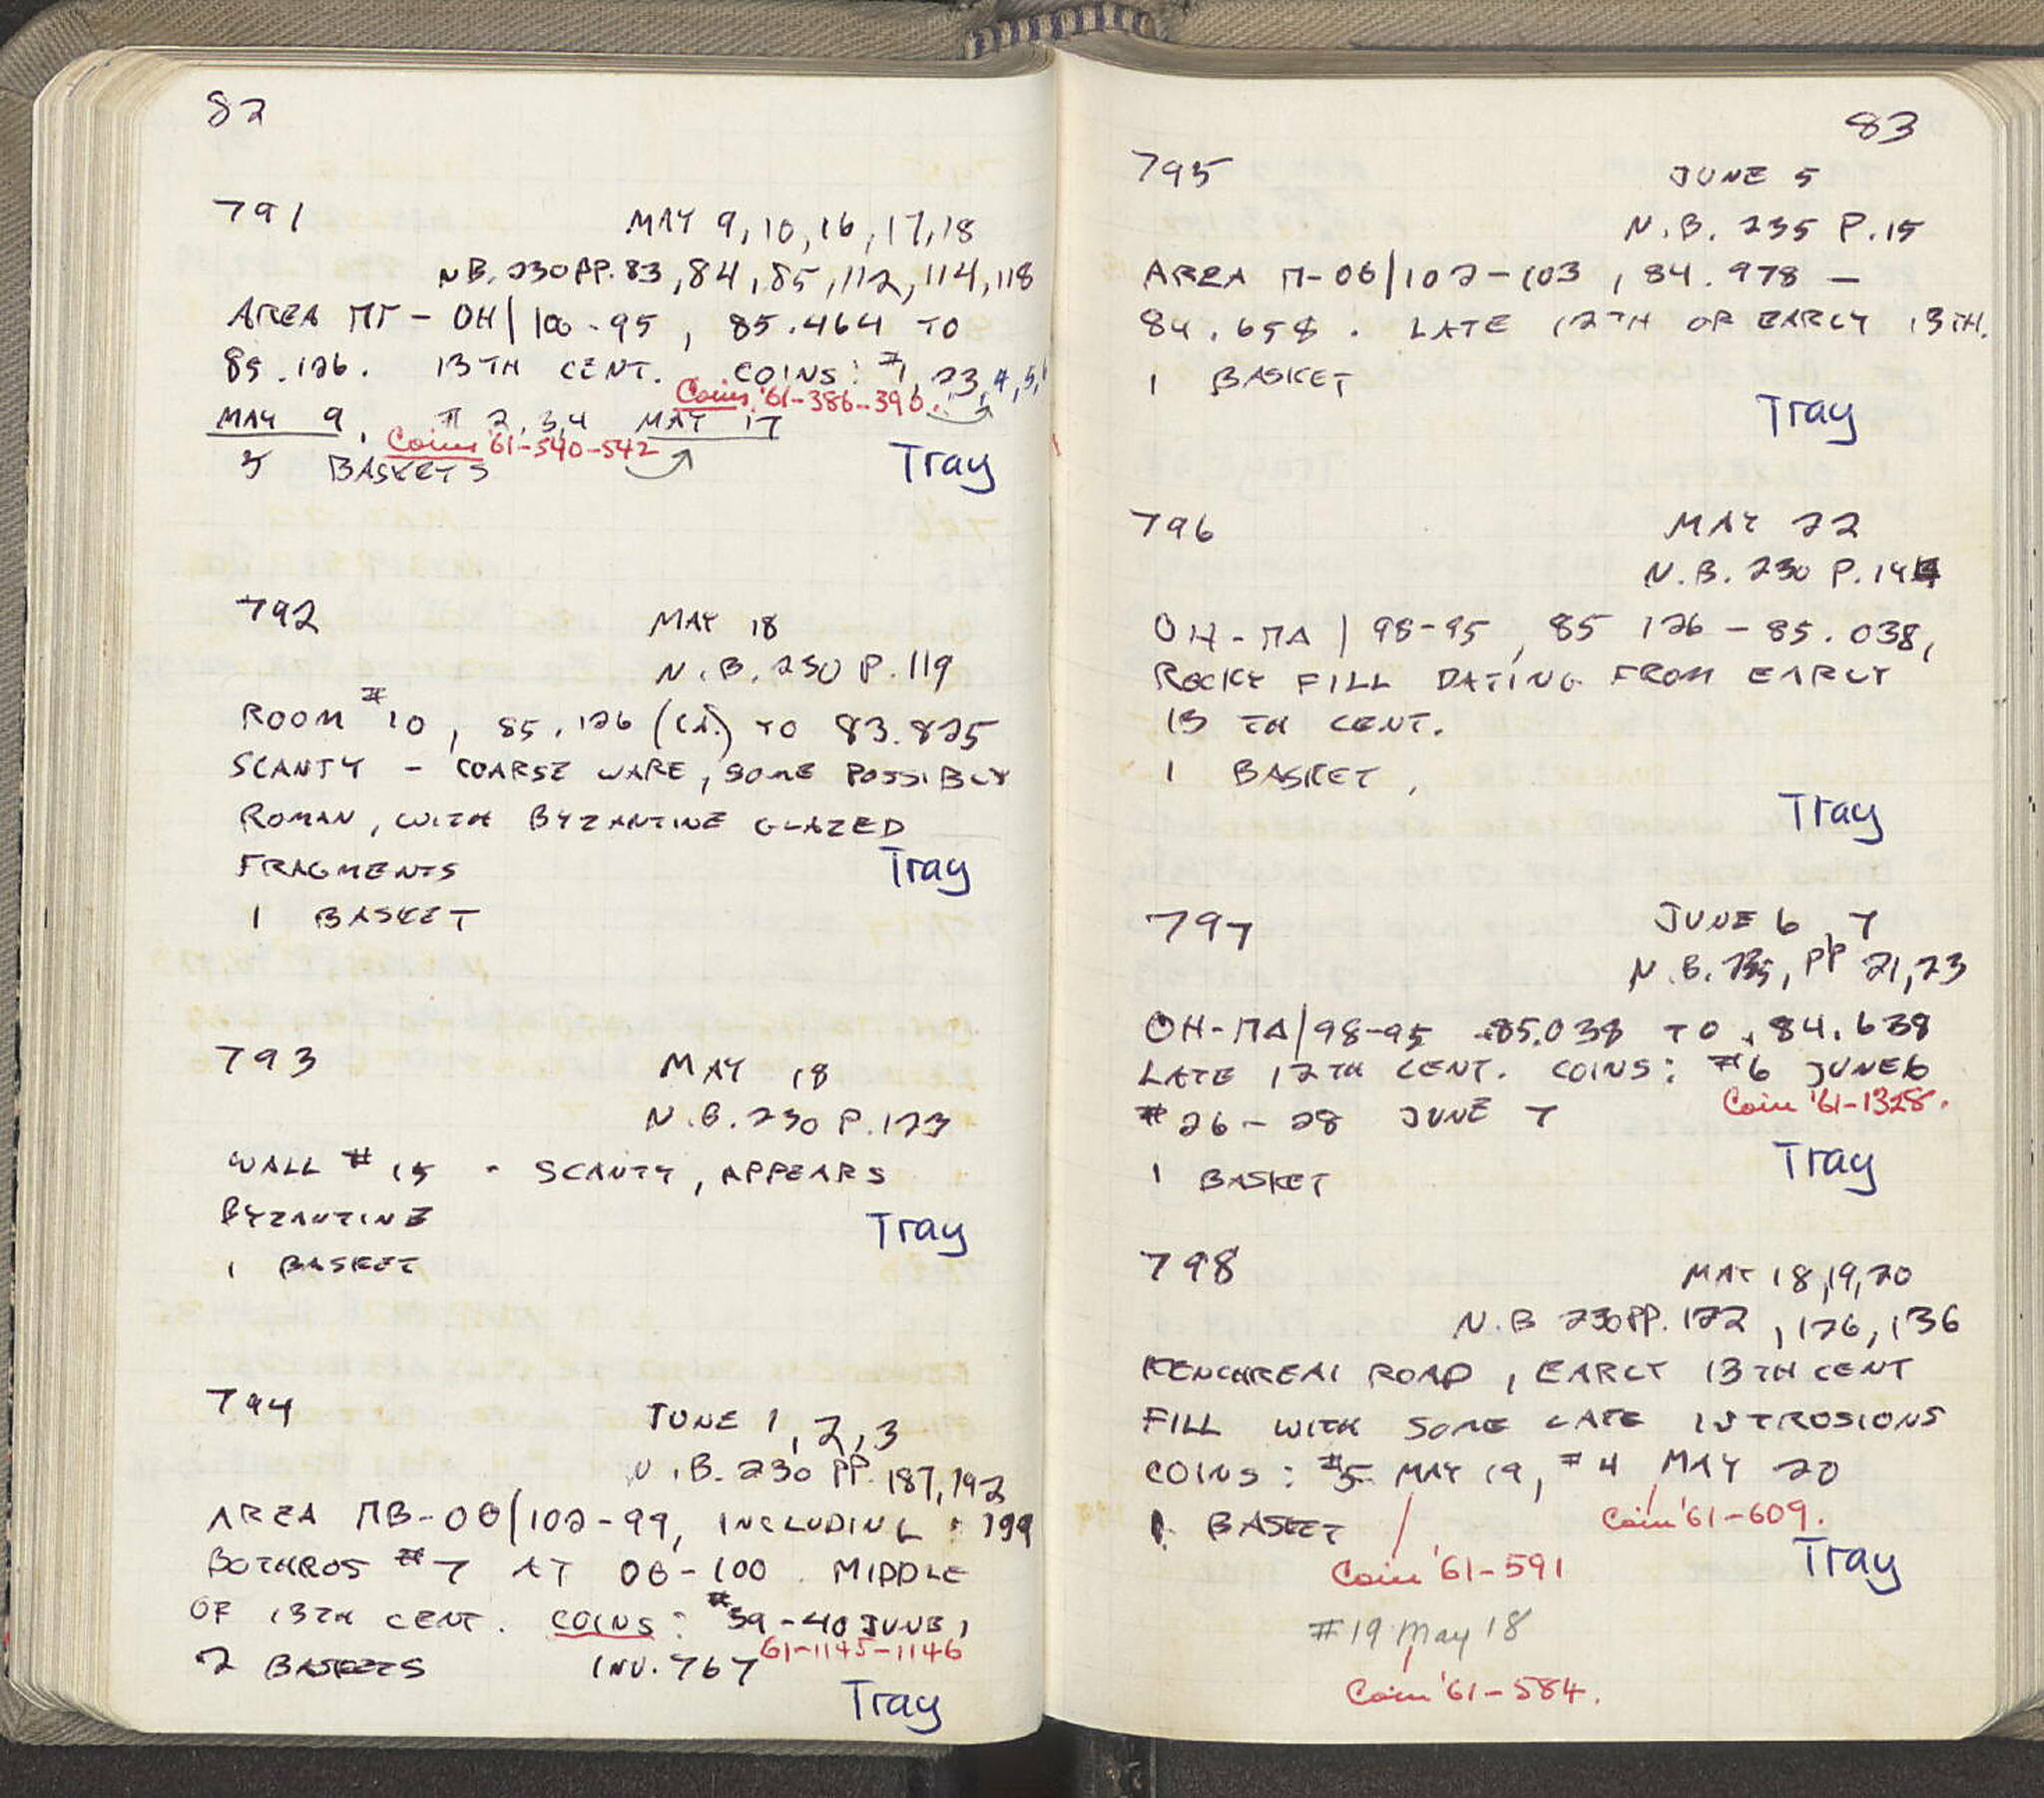 82
791 MAY 9, 10, 16, 17, 18
NB. 230 PP. 83, 84, 85, 112, 114, 118
AREA ΠΓ - ΟΗ | 100-95, 85.464 TO
85.126. 13TH CENT. COINS: #1, 23, 4, 5,
Coins '61-386-396.
MAY 9, # 2, 3, 4 MAY 17
Coins '61-540-542
5 BASKETS Tray
792 MAY 18
N.B. 230 P. 119
ROOM #10, 85.126 (CA.) TO 83.825
SCANTY - COARSE WARE, SOME POSSIBLY
ROMAN, WITH BYZANTINE GLAZED
FRAGMENTS Tray
1 BASKET
793 MAY 18
N.B. 230 P. 123
WALL # 15 - SCANTY, APPEARS
BYZANTINE Tray
1 BASKET
794 JUNE 1, 2, 3
N.B. 230 PP. 187, 192
AREA ΠΒ-ΟΘ | 102-99, INCLUDING 199
BOTHROS #7 AT ΟΘ-100. MIDDLE
OF 13TH CENT. COINS: #39-40 JUNE 1
61-1145-1146
2 BASKETS INV. 767
Tray
83
795 JUNE 5
N.B. 235 P. 15
AREA Π-ΟΘ | 102-103, 84.978 -
84.658. LATE 12TH OR EARLY 13TH.
1 BASKET
Tray
796 MAY 22
N.B. 230 P. 144
ΟΗ-ΠΑ | 98-95, 85 126 - 85.038,
ROCKY FILL DATING FROM EARLY
13 TH CENT.
1 BASKET,
Tray
797 JUNE 6, 7
N.B. 235, PP 21, 23
ΟΗ-ΠΑ | 98-95 85.038 TO 84.638
LATE 12TH CENT. COINS: #6 JUNE 6
Coin '61-1328.
# 26 - 28 JUNE 7
Tray
1 BASKET
798 MAY 18, 19, 20
N.B 230 PP. 122, 126, 136
KENCHREAI ROAD, EARLY 13TH CENT
FILL WITH SOME LATE INTROSIONS
COINS: #5 MAY 19, #4 MAY 20
1 BASKET Coin '61-609.
Coin '61-591 Tray
#19 May 18
Coin '61-584.